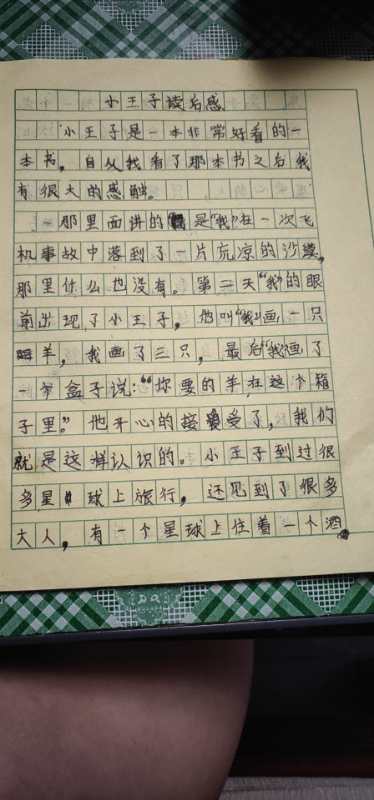 小王子读后感
小王子是一本非常好看的一
本书，自从我看了那本书之后我
有很大的感触。
那里面讲的是“我”在一次飞
机事故中落到了一片荒凉的沙漠，
那里什么也没有。第二天“我”的眼
前出现了小王子，他叫“我”画一只
羊，我画了三只，最后“我”画了
一个盒子说：“你要的羊在这个箱
子里。”他开心的接受了，我们
就是这样认识的。小王子到过很
多星球上旅行，还见到了很多
大人，有一个星球上住着一个酒